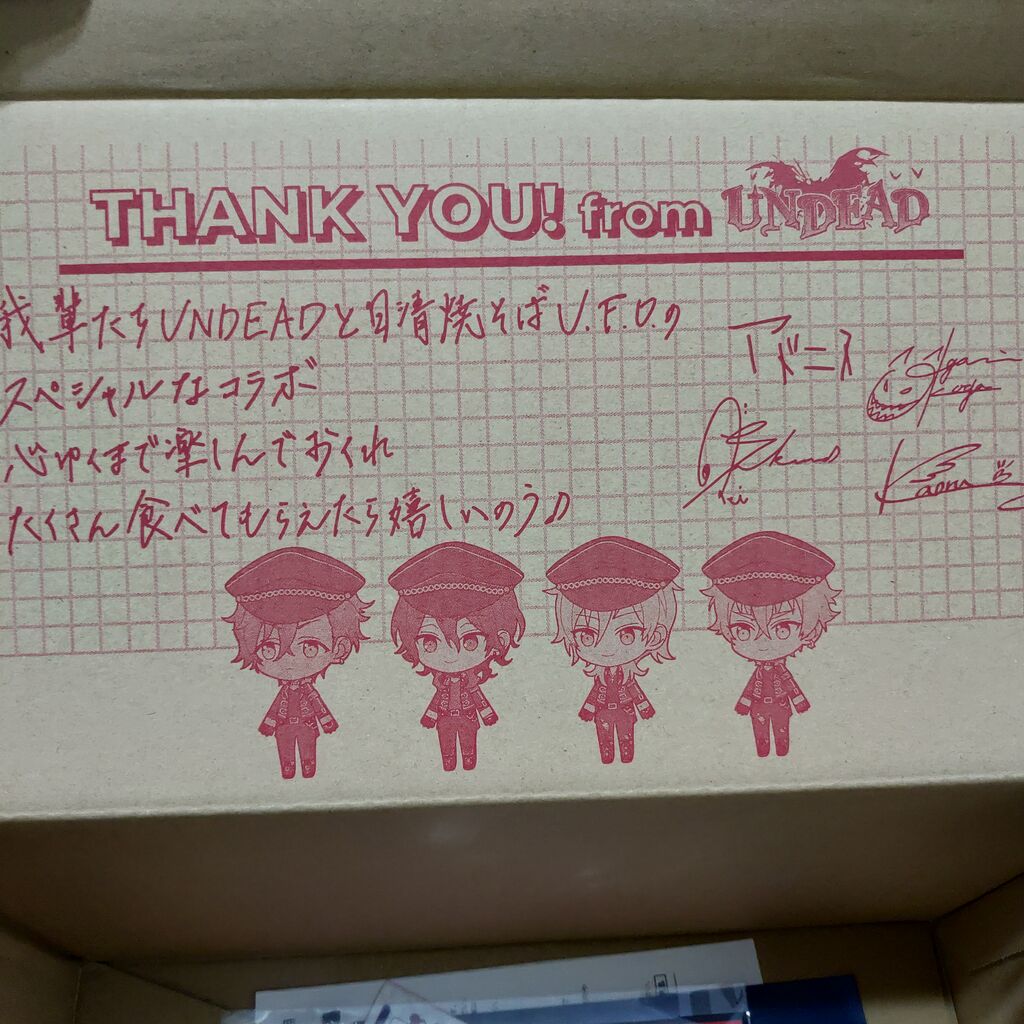 THANK YOU! from UNDEAD
我輩たちUNDEADと日清焼そばU.F.O.の
スペシャルなコラボ
心ゆくまで楽しんでおくれ
たくさん食べてもらえたら嬉しいのう♪
アドニス
Ogami Koga
Rei Sakuma
Kaoru